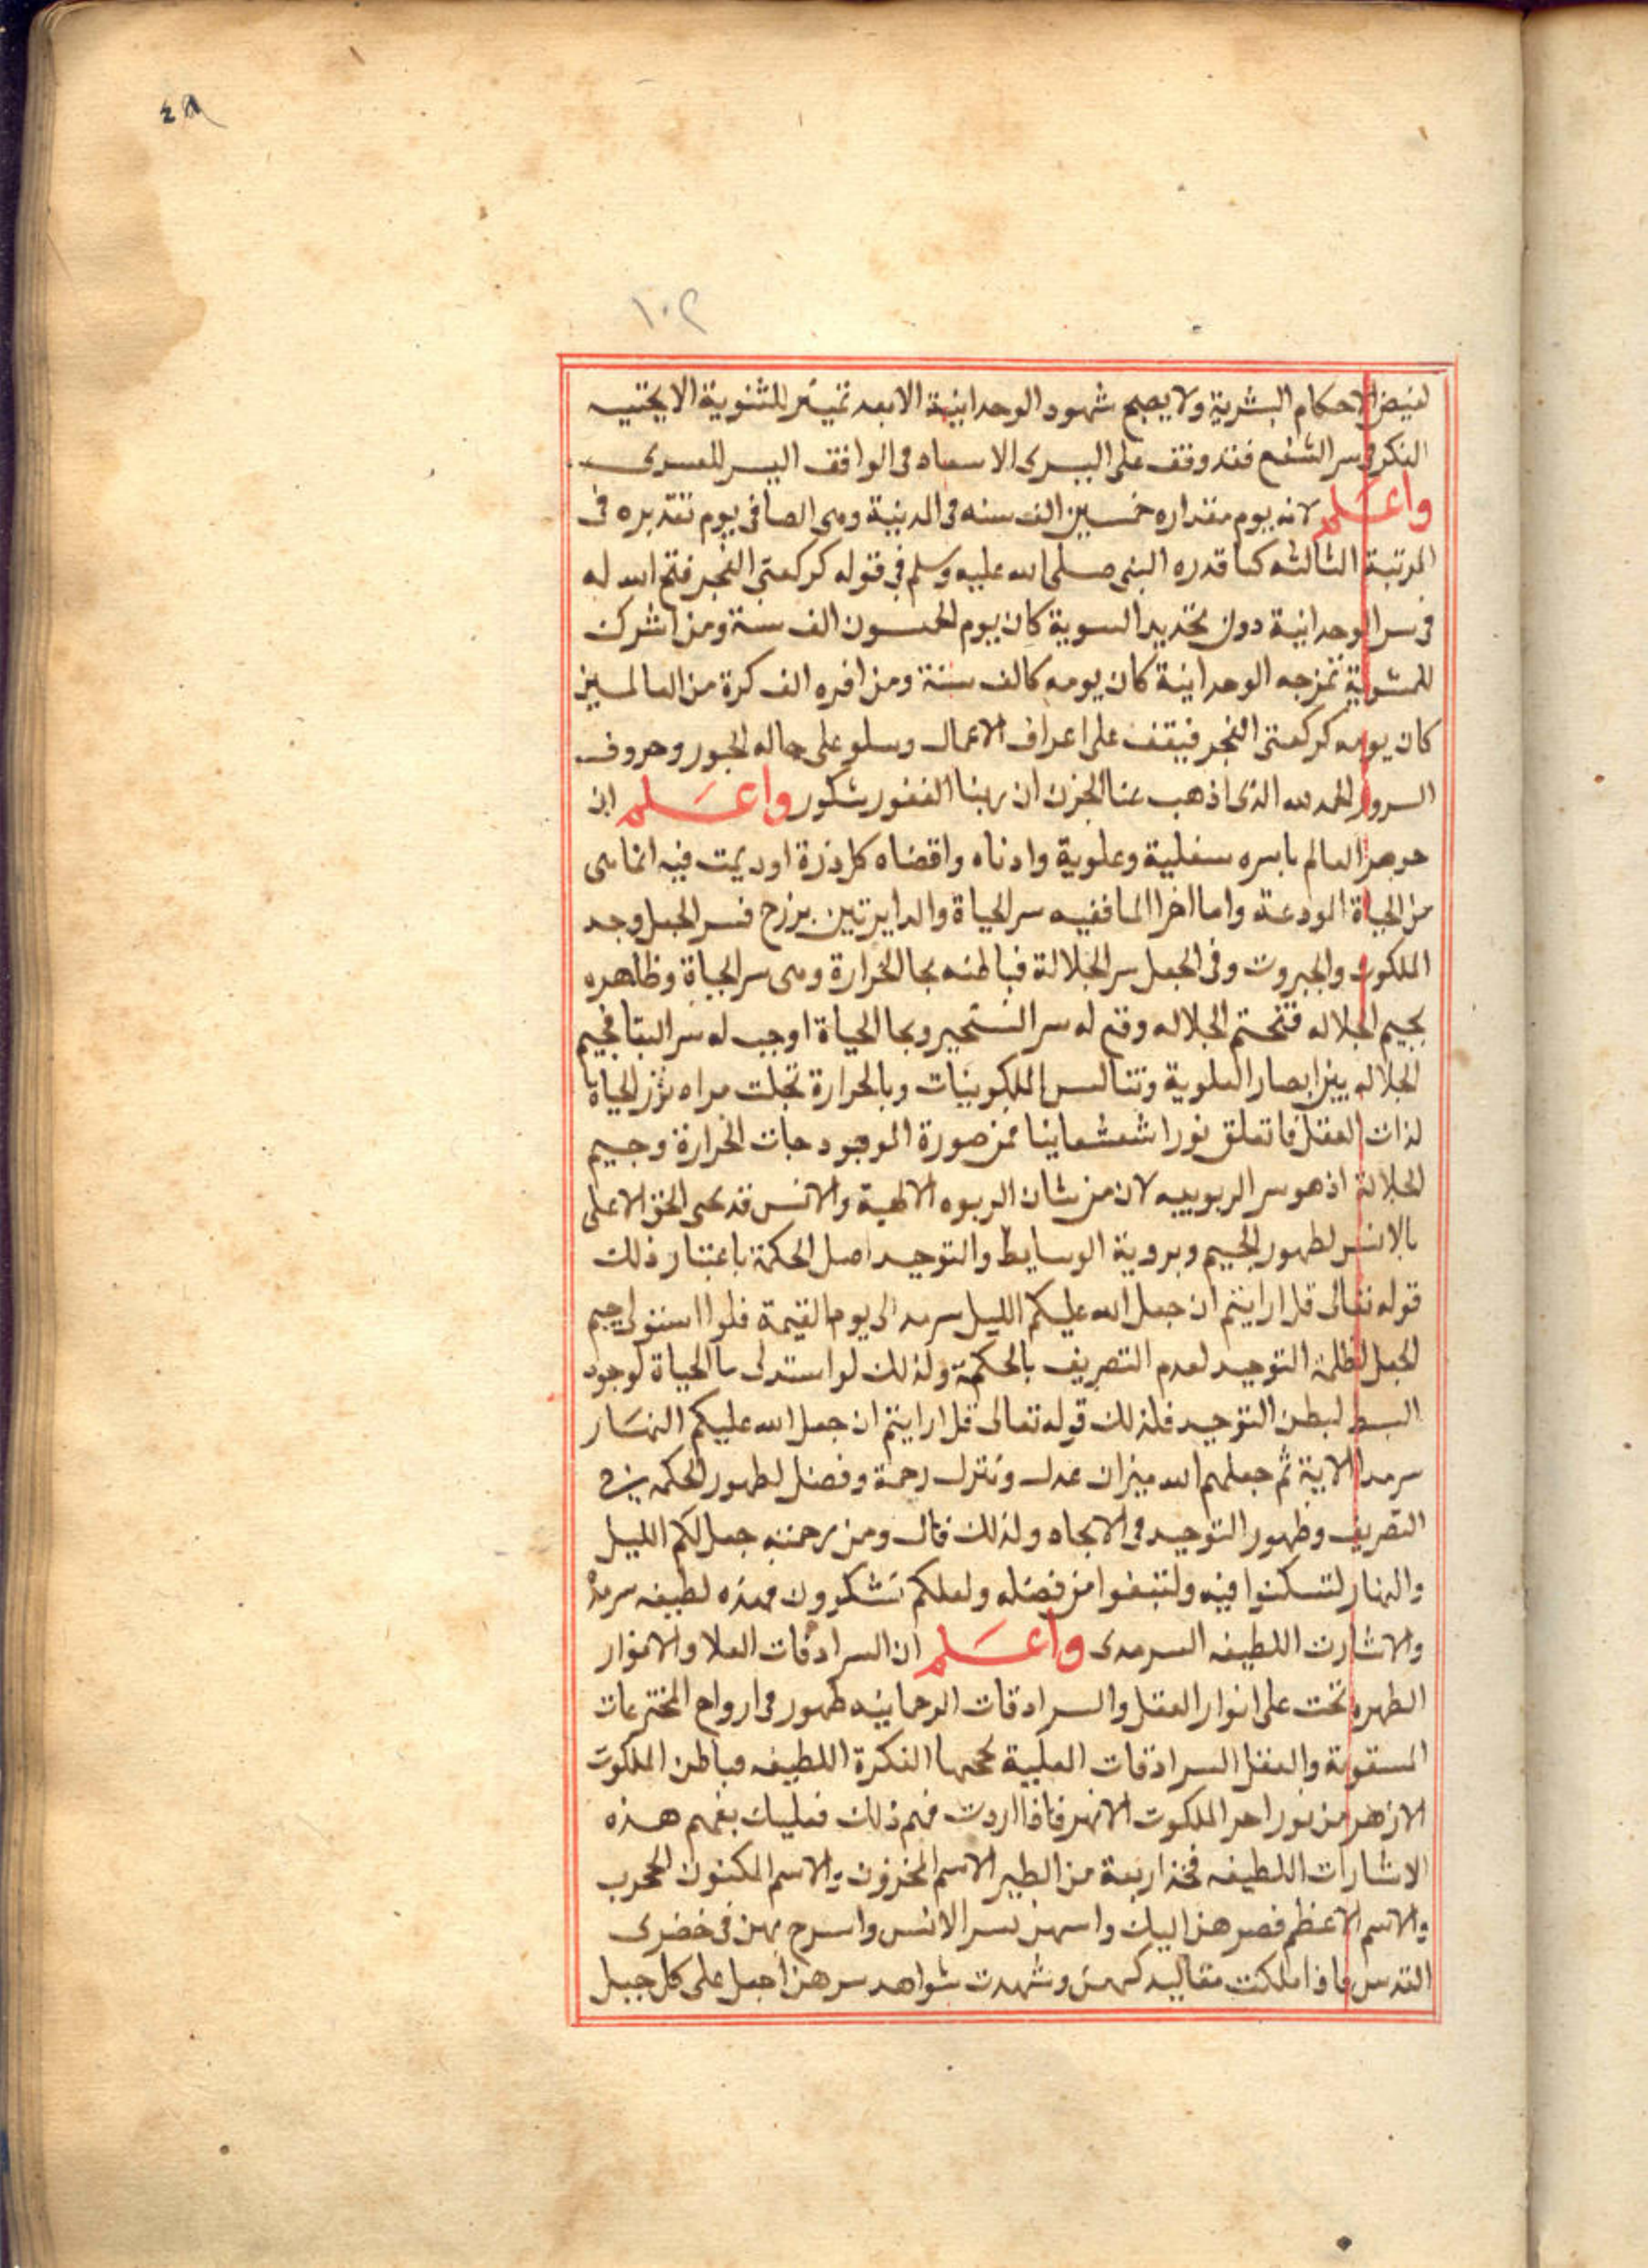 ٤٨
١٠٢
لفيض الاحكام البشرية ولا يصح شهود الوحدانية الا بعد تمييز للثنوية الا
الفكر في سر الشفع فقد وقف على اليسرى في الواقف اليسر للعسرى
واعلم لانه يوم مقداره خمسين الف سنه في المدنية وهى الصافى يوم تقديره فى
المرتبة الثالثه كما قدره النبى صلى الله عليه وسلم في قوله كركعتى الفجر فتح الله له
فى سر الوحدانية دون تحديد السوية كان يوم الخمسون الف سنة ومن اشرك
تمزجه الوحدانية كان يومه كالف سنة ومن افره الف كرة من العالمين
كان يومه كركعتى الفجر فيقف على اعراف الاعمال وسلو على حاله الحبور وحروف
السرور الحمد لله الذى اذهب عنا الحزن ان ربنا لغفور شكور واعلم ان
جوهر العالم باسره سفلية وعلوية وادناه واقصاه كل ذرة اوديمت فيه انما هى
من الحياة المودعة واما اخر الما ففيه سر الحياة والدايرتين برزح فسر الجبل وجد
الملكوت والجبروت وفى الجعل سر الجلالة فباطنه بحا الحرارة وهى سر الحياة وظاهره
بجيم الجلاله فتحتم الجلاله وقع له سر التسخير وبحا الحياة اوجب له سر البقا فجيم
الجلاله بين ابصار العلوية الملكوتيات وبالحرارة تجلت مراه الحياة
لذات العقل فاتعلق نورا شعشعاينا فمن صورة الموجود حات الحرارة وجيم
الجلالة اذ هو سر الربوبيه لان من شان الربوه الالهية والانس قد الحق الاعلى
بالانس لظهور الجيم وبروية الوسايط والتوحيد اصل الحكمة باعتبار ذلك
قوله تعالى قل ارايتم ان جعل الله عليكم الليل سرمد الى يوم القيمة فلو استولى جيم
الجعل لظلمة التوحيد لعدم التصريف بالحكمة ولذلك لو استدلى ما الحياة لوجود
البسط لبطن التوحيد فلذلك قوله تعالى قل ارايتم ان جعل الله عليكم النهار
سرمدا الاية ثم جعلهم الله ميزان عدل وتنزل رحمة وفضل لظهور الحكمه فى
التصريف وظهور التوحيد فى الايجاد ولذلك قال ومن رحمته جعل لكم الليل
والنهار لتسكنوا فيه ولتبتغوا من فضله ولعلكم تشكرون فهذه لطيفه سرمد
والاشارت اللطيفه السرمدى واعلم ان السرادقات العلا والانوار
الطهره تحت على انوار العقل والسرادقات الرحمانيه ظهور فى ارواح المخترعات
والعقل السرادقات العلية الفكرة اللطيفه فباطن الملكوت
الازهر من نور احر الملكوت الانهر فاذا اردت فهم ذلك فعليك بفهم هذه
الاشارات اللطيفه فخذ اربعة من الطير الاسم المخزون والاسم المكنون المجرب
والاسم الاعظم فصرهن اليك واسهن بسر الانس واسرح بهن فى خضرى
القدس فاذا ملكت مقاليد وشهدت شواهد سرهن اجعل على كل جبل